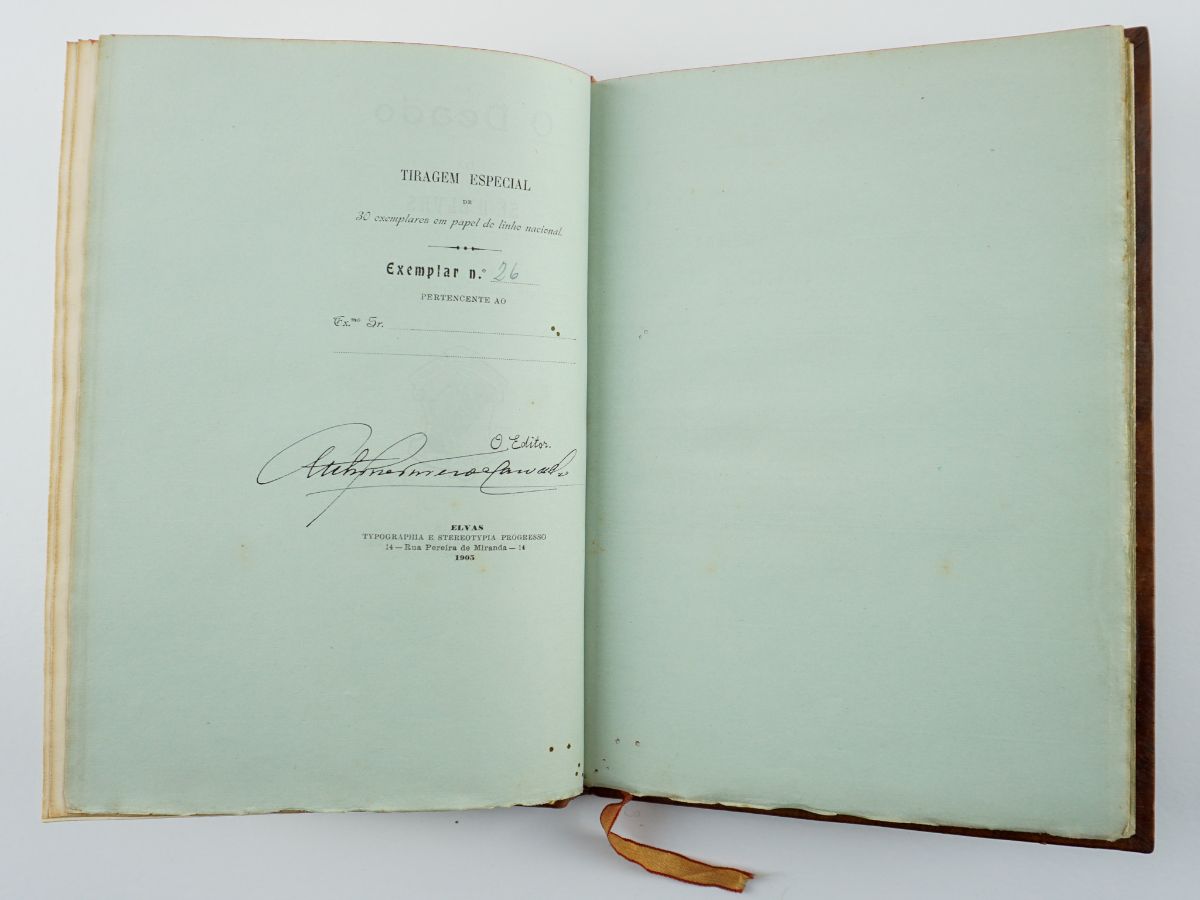 TIRAGEM ESPECIAL
DE
30 exemplares em papel de linho nacional.
Exemplar n.º 26
PERTENCENTE AO
Ex.mo Sr.
O Editor.
ELVAS
TYPOGRAPHIA E STEREOTYPIA PROGRESSO
14—Rua Pereira de Miranda—14
1905